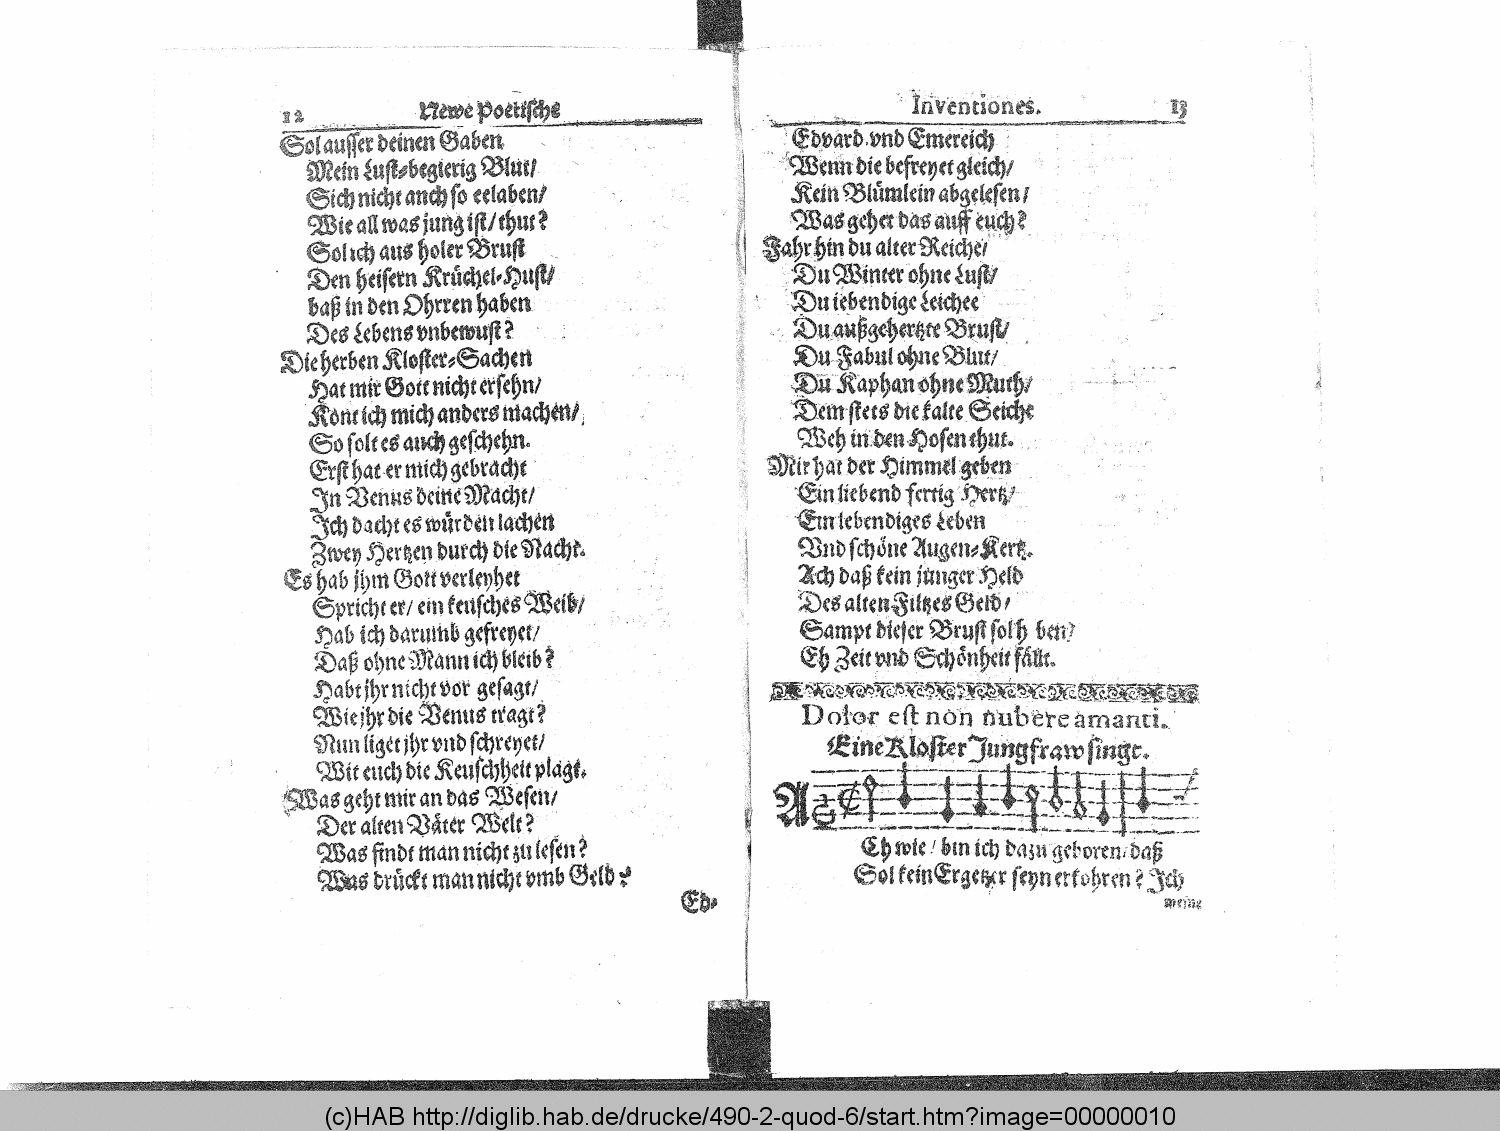 12 Newe Poetische
Sol ausser deinen Gaben
Mein Lust-begierig Blut/
Sich nicht anch so eelaben/
Wie all was jung ist/ thut?
Sol ich aus holer Brust
Den heisern Krüchel-Hust/
baß in den Ohrren haben
Des Lebens vnbewust?
Die herben Kloster-Sachen
Hat mir Gott nicht ersehn/
Könt ich mich anders machen/
So solt es auch geschehn.
Erst hat er mich gebracht
In Venus deine Macht/
Ich dacht es würden lachen
Zwey Hertzen durch die Nacht.
Es hab jhm Gott verleyhet
Spricht er/ ein keusches Weib/
Hab ich darumb gefreyet/
Daß ohne Mann ich bleib?
Habt jhr nicht vor gesagt/
Wie jhr die Venus tragt?
Nun liget jhr vnd schreyet/
Wit euch die Keuschheit plagt.
Was geht mir an das Wesen/
Der alten Väter Welt?
Was findt man nicht zu lesen?
Was drückt man nicht vmb Geld?
Ed-
Inventiones. 13
Edvard vnd Emereich
Wenn die befreyet gleich/
Kein Blümlein abgelesen/
Was gehet das auff euch?
Fahr hin du alter Reiche/
Du Winter ohne Lust/
Du lebendige Leichee
Du außgehertzte Brust/
Du Fabul ohne Blut/
Du Kaphan ohne Muth/
Dem stets die kalte Seiche
Weh in den Hosen thut.
Mir hat der Himmel geben
Ein liebend fertig Hertz/
Ein lebendiges Leben
Vnd schöne Augen-Kertz.
Ach daß kein junger Held
Des alten Filtzes Geld/
Sampt dieser Brust sol h ben?
Eh Zeit vnd Schönheit fällt.
Dolor est non nubere amanti.
Eine Kloster Jungfraw singt.
A
Ch wie/ bin ich dazu geboren/ daß
Sol kein Ergetzer seyn erkohren? Ich
meine
(c)HAB http://diglib.hab.de/drucke/490-2-quod-6/start.htm?image=00000010